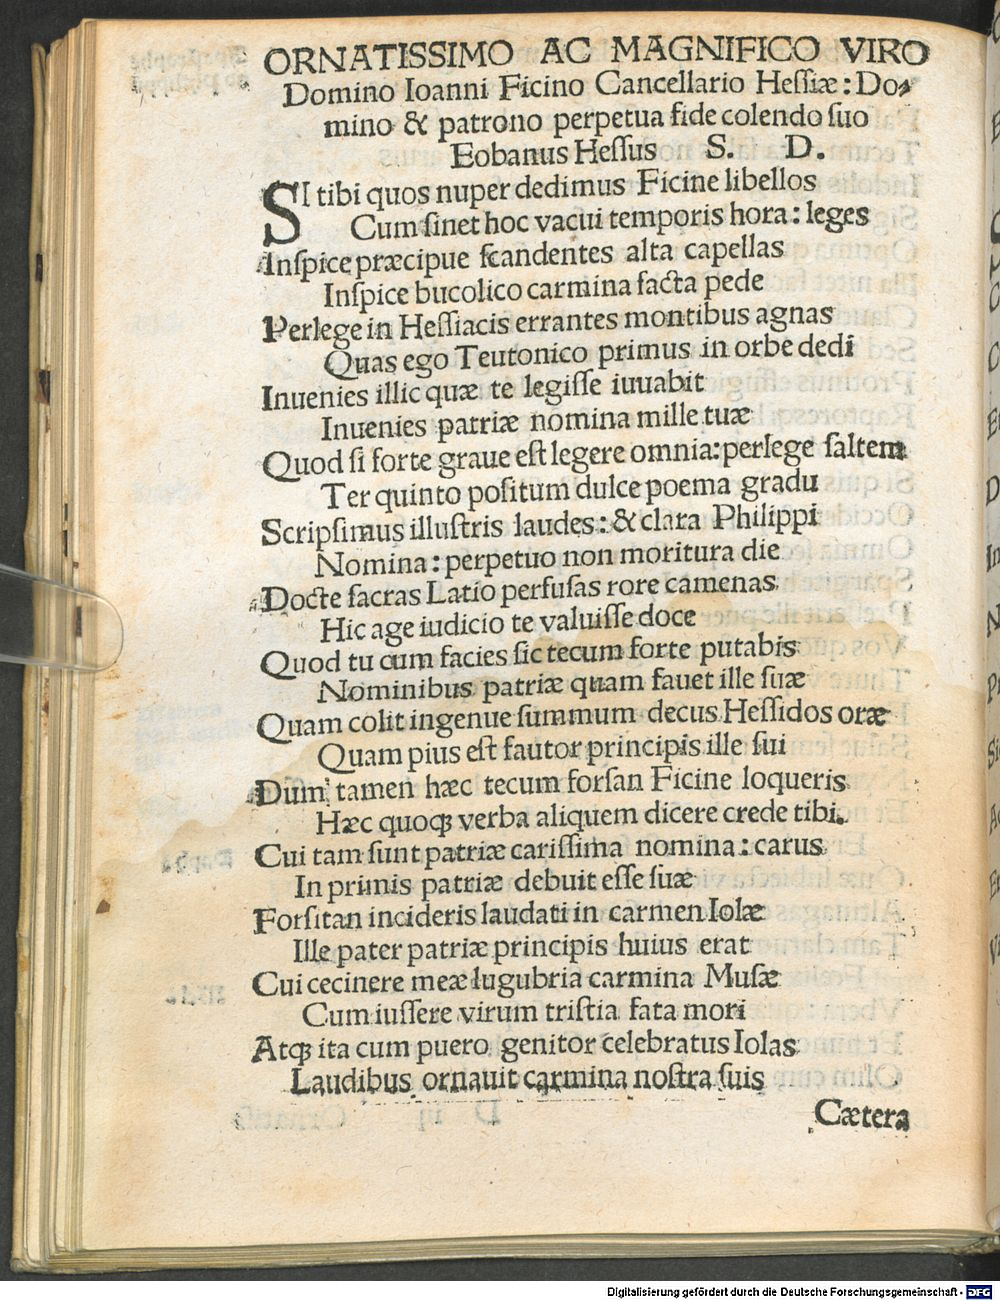 ORNATISSIMO AC MAGNIFICO VIRO
Domino Ioanni Ficino Cancellario Heſſiæ: Do⸗
mino & patrono perpetua fide colendo ſuo
Eobanus Heſſus S. D.
SI tibi quos nuper dedimus Ficine libellos
Cum ſinet hoc vacui temporis hora: leges
Inſpice præcipue ſcandentes alta capellas
Inſpice bucolico carmina facta pede
Perlege in Heſſiacis errantes montibus agnas
Quas ego Teutonico primus in orbe dedi
Inuenies illic quæ te legiſſe iuuabit
Inuenies patriæ nomina mille tuæ
Quod ſi forte graue eſt legere omnia: perlege ſaltem
Ter quinto poſitum dulce poema gradu
Scripſimus illuſtris laudes: & clara Philippi
Nomina: perpetuo non moritura die
Docte ſacras Latio perfuſas rore camenas
Hic age iudicio te valuiſſe doce
Quod tu cum facies ſic tecum forte putabis
Nominibus patriæ quam fauet ille ſuæ
Quam colit ingenue ſummum decus Heſſidos oræ
Quam pius eſt fautor principis ille ſui
Dum tamen hæc tecum forſan Ficine loqueris
Hæc quoqꝫ verba aliquem dicere crede tibi.
Cui tam ſunt patriæ cariſſima nomina: carus
In primis patriæ debuit eſſe ſuæ
Forſitan incideris laudati in carmen Iolæ
Ille pater patriæ principis huius erat
Cui cecinere meæ lugubria carmina Muſæ
Cum iuſſere virum triſtia fata mori
Atqꝫ ita cum puero genitor celebratus Iolas
Laudibus ornauit carmina noſtra ſuis
Cætera
Digitalisierung gefördert durch die Deutsche Forschungsgemeinschaft - DFG